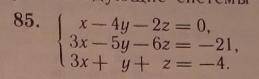 85. { x − 4y − 2z = 0,
3x − 5y − 6z = −21,
3x + y + z = −4.